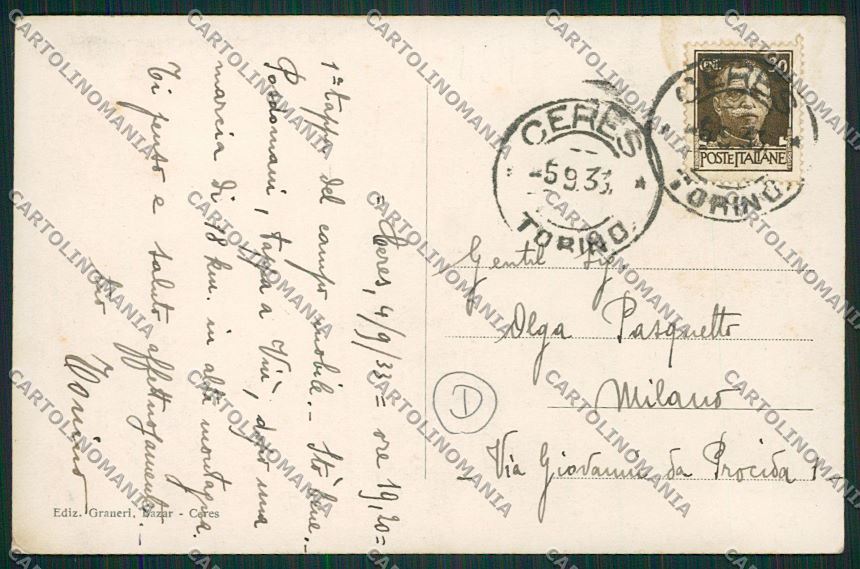 = Ceres, 4/9/33 = ore 19,20 =
1ª tappa del campo mobile. - Stò bene. -
Posdomani, tappa a Viù, dopo una
marcia di 18 km. in alta montagna.
Ti penso e saluto affettuosamente. -
tuo
Tonino
Ediz. Graneri, Bazar - Ceres
CERES
-5 9.33
TORINO
CERES
TORINO
CENT.
POSTE ITALIANE
Gentil Sig.
Olga Pasquetto
Milano
Via Giovanni da Procida 1
D
CARTOLINOMANIA